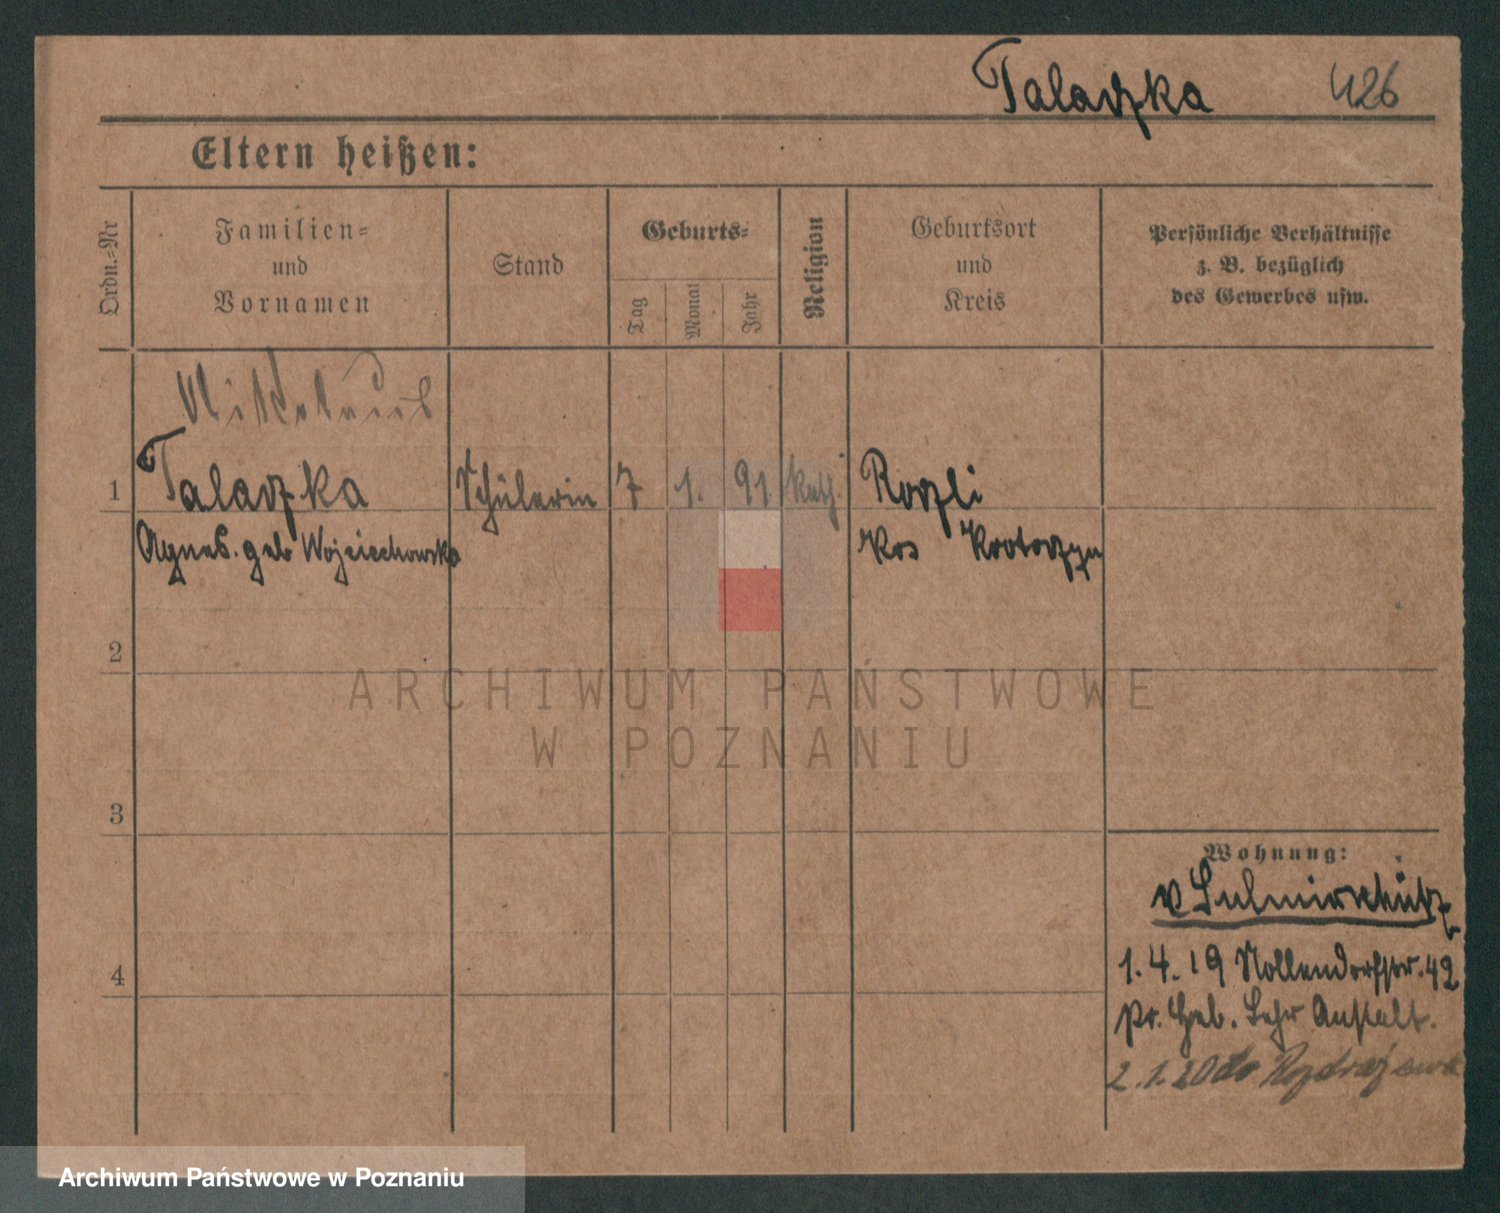 Talaczka 426
Eltern heißen:
Ordn.-Nr
Familien-
und
Vornamen
Stand
Geburts-
Tag
Monat
Jahr
Religion
Geburtsort
und
Kreis
Persönliche Verhältnisse
z. B. bezüglich
des Gewerbes usw.
1 Talaczka Schülerin 7 1. 91 kath.
Agnes. geb Wojciechowska Krs Krotoszyn
2
3
4
Wohnung:
v Sulmirschütz
1. 4. 19 Nollendorfstr. 42
pr. Heb. Lehr Anstalt.
2.1.20 do
ARCHIWUM PAŃSTWOWE
W POZNANIU
Archiwum Państwowe w Poznaniu